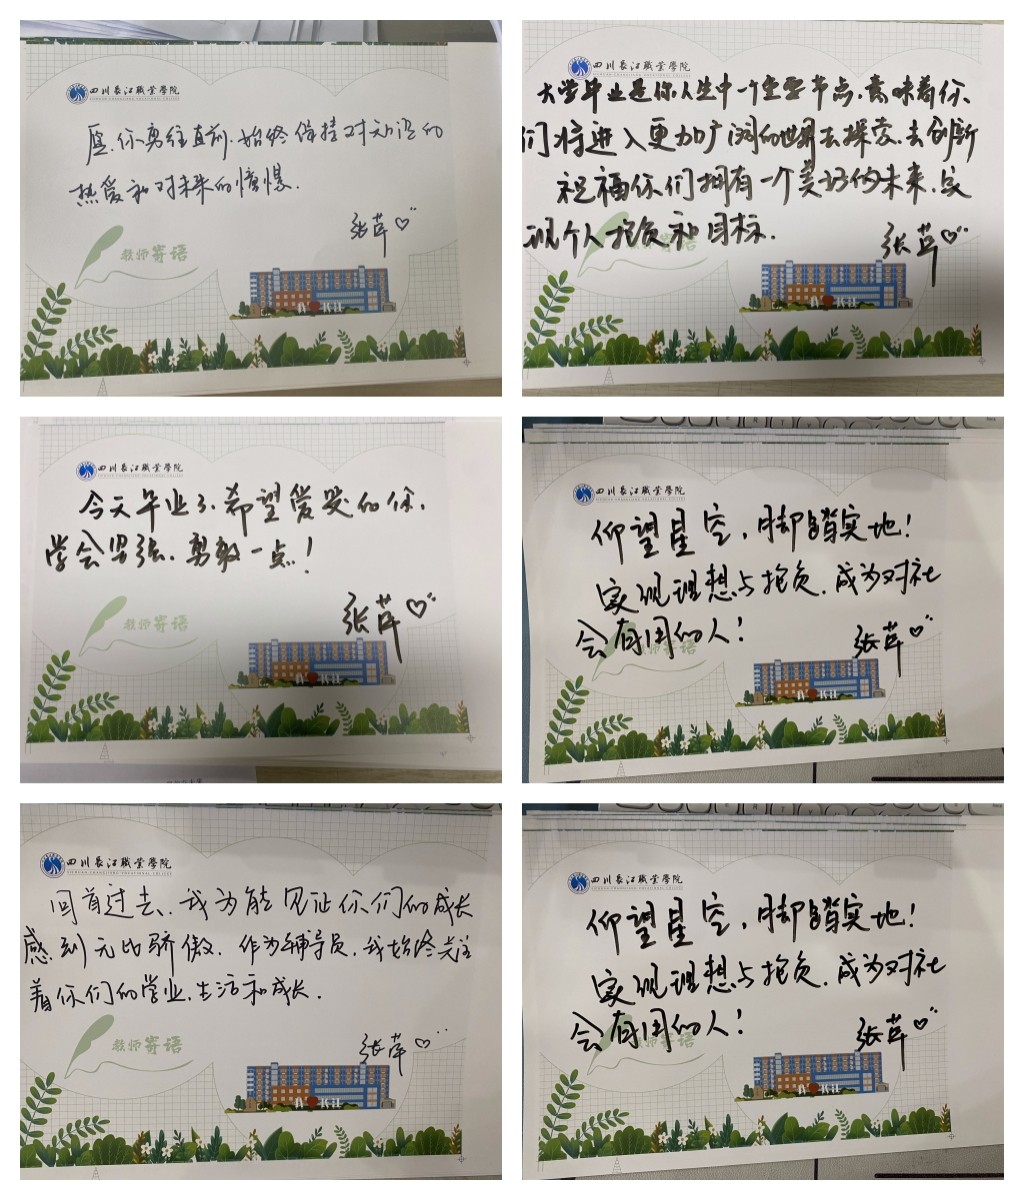 四川長江職業學院
愿你勇往直前、始终保持对知识的
热爱和对未来的憧憬.
张萍
教师寄语
四川長江職業學院
大学毕业是你人生中一个重要节点、意味着你
们将进入更加广阔的世界去探索、去创新
祝福你们拥有一个美好的未来、实
现个人抱负和目标.
张萍
四川長江職業學院
今天毕业了、希望爱哭的你、
学会坚强、勇敢一点!
张萍
教师寄语
四川長江職業學院
仰望星空,脚踏实地!
实现理想与抱负、成为对社
会有用的人!
张萍
教师寄语
四川長江職業學院
SICHUAN CHANGJIANG VOCATIONAL COLLEGE
回首过去、我为能见证你们的成长
感到无比骄傲. 作为辅导员、我始终关注
着你们的学业、生活和成长.
张萍
教师寄语
四川長江職業學院
仰望星空,脚踏实地!
实现理想与抱负、成为对社
会有用的人!
张萍
教师寄语